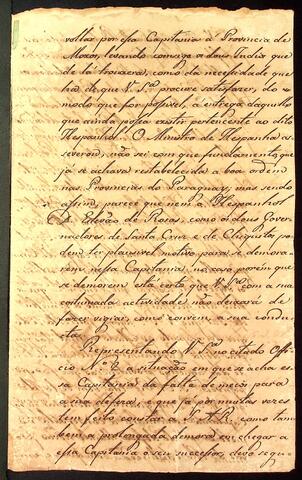 voltar por essa Capitania á Provincia de
Moxos, levando comsigo a dous Indios que
de lá trouxera, como da necessidade que
ha de que V. S.ª procure satisfazer, do
modo que for possivel, a entrega daquillo
que ainda possa existir pertencente ao dito
Hespanhol. O Ministro de Hespanha as-
severou, não sei com que fundamento, que
já se achava restabelecida a boa ordem
nas Provincias do Paraguay, mas sendo
assim, parece que nem o Hespanhol
D. Estevão de Rosas, como os dous Gover-
nadores de Santa Cruz e de Chiquitos po-
dem ter plausivel motivo para se demora-
rem nessa Capitania; no caso porém que
se demorem, está certo que V. S.ª com a sua
costumada actividade não deixará de
fazer vigiar, como convem, a sua condu-
cta.
Representando V. S.ª no citado Offi-
cio N.º 2 a situação em que se acha es-
sa Capitania da falta de meios para
a sua defeza, e que já por muitas vezes
tem feito constar a S. A. R. como tam-
bem a prolongada demora em chegar a
essa Capitania o seu successor, devo segu-